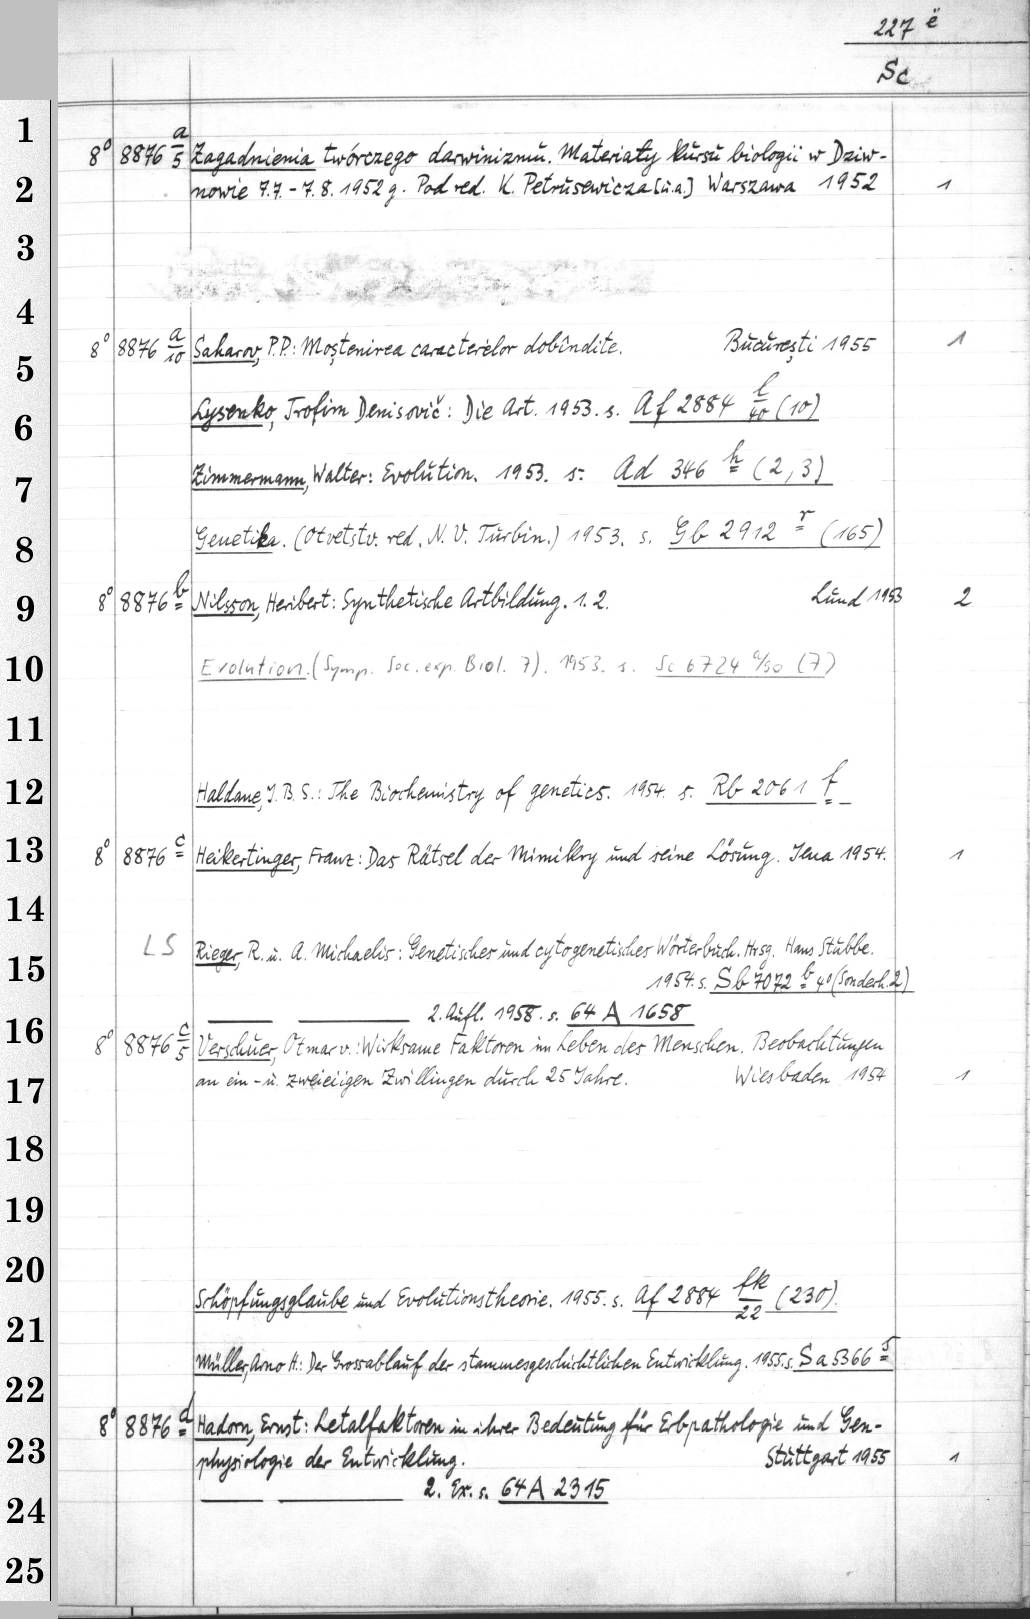 227 ë
Sc
1
8° 8876 a/5 Zagadnienia twórczego darwinizmu. Materiały kursu biologii w Dziw-
2
nowie 7.7.-7.8.1952 g. Pod red. K. Petrusewicza [u.a.] Warszawa 1952 1
3
4
8° 8876 a/10 Saharov, P.P.: Moştenirea caracterelor dobîndite. Bucureşti 1955 1
5
Lysenko, Trofim Denisovič: Die Art. 1953. s. Af 2884 l/40 (10)
6
Zimmermann, Walter: Evolution. 1953. s. Ad 346 h (2,3)
7
Genetika. (Otvetstv. red. N. V. Turbin.) 1953. s. Gb 2912 r (165)
8
8° 8876 b Nilsson, Heribert: Synthetische Artbildung. 1. 2. Lund 1953 2
9
Evolution. (Symp. Soc. exp. Biol. 7). 1953. s. Sc 6724 a/50 (7)
10
11
Haldane, J. B. S.: The Biochemistry of genetics. 1954. s. Rb 2061 f
12
8° 8876 c Heikertinger, Franz: Das Rätsel der Mimikry und seine Lösung. Jena 1954. 1
13
14
LS Rieger, R. u. A. Michaelis: Genetisches und cytogenetisches Wörterbuch. Hrsg. Hans Stubbe.
15
1954. s. Sb 7072 b 4° (Sonderh. 2)
2. Aufl. 1958. s. 64 A 1658
16
8° 8876 c/5 Verschuer, Otmar v.: Wirksame Faktoren im Leben des Menschen. Beobachtungen
17
an ein- u. zweieiigen Zwillingen durch 25 Jahre. Wiesbaden 1954 1
18
19
20
Schöpfungsglaube und Evolutionstheorie. 1955. s. Af 2884 fk/22 (230).
21
Müller, Arno H.: Der Grossablauf der stammesgeschichtlichen Entwicklung. 1955. s. Sa 5366 5
22
8° 8876 d Hadorn, Ernst: Letalfaktoren in ihrer Bedeutung für Erbpathologie und Gen-
23
physiologie der Entwicklung. Stuttgart 1955 1
2. Ex. s. 64 A 2315
24
25